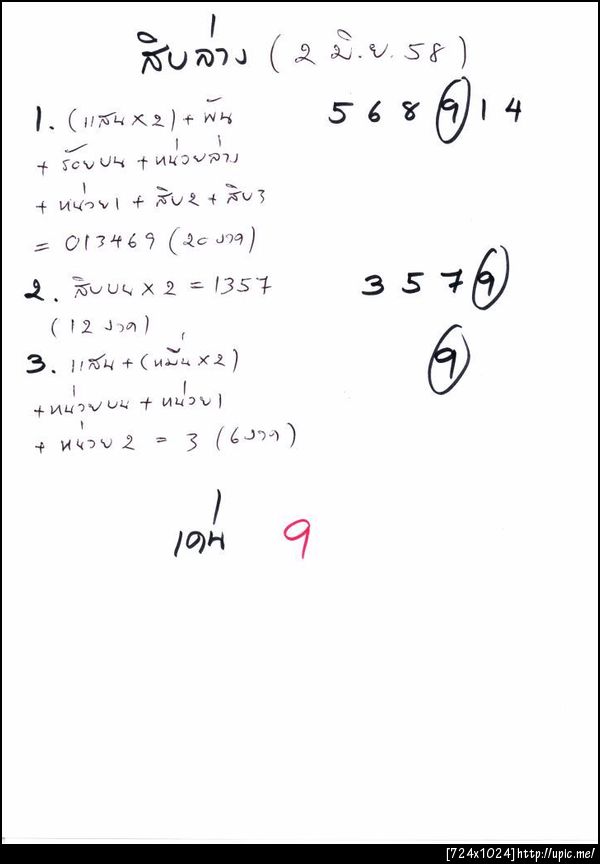 สิบล่าง (2 มิ.ย. 58)
1. (แสน x 2) + พัน 5 6 8 9 1 4
+ ร้อยบน + หน่วยล่าง
+ หน่วย1 + สิบ2 + สิบ3
= 013469 (20 งวด)
2. สิบบน x 2 = 1357 3 5 7 9
(12 งวด)
3. แสน + (หมื่น x 2) 9
+ หน่วยบน + หน่วย1
+ หน่วย 2 = 3 (6 งวด)
เด่น 9
[724x1024]http://upic.me/